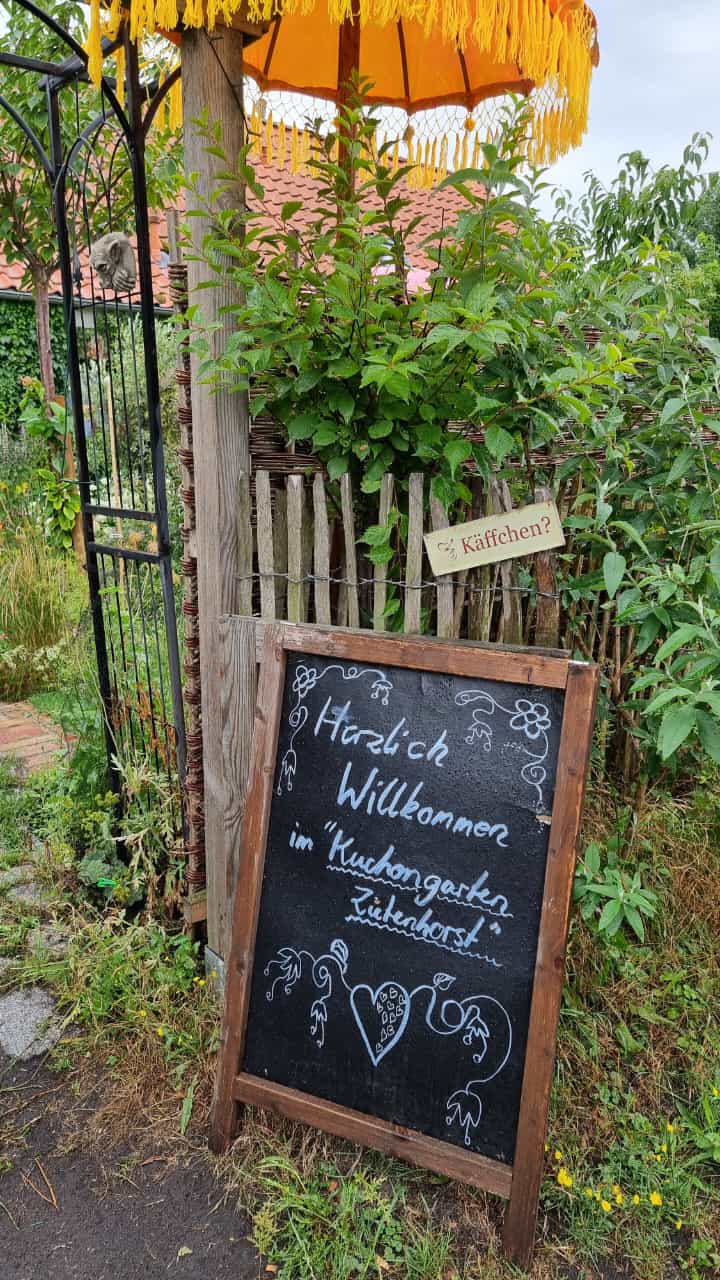 Käffchen?
Herzlich
Willkommen
im "Kuchengarten
Zützenhorst"